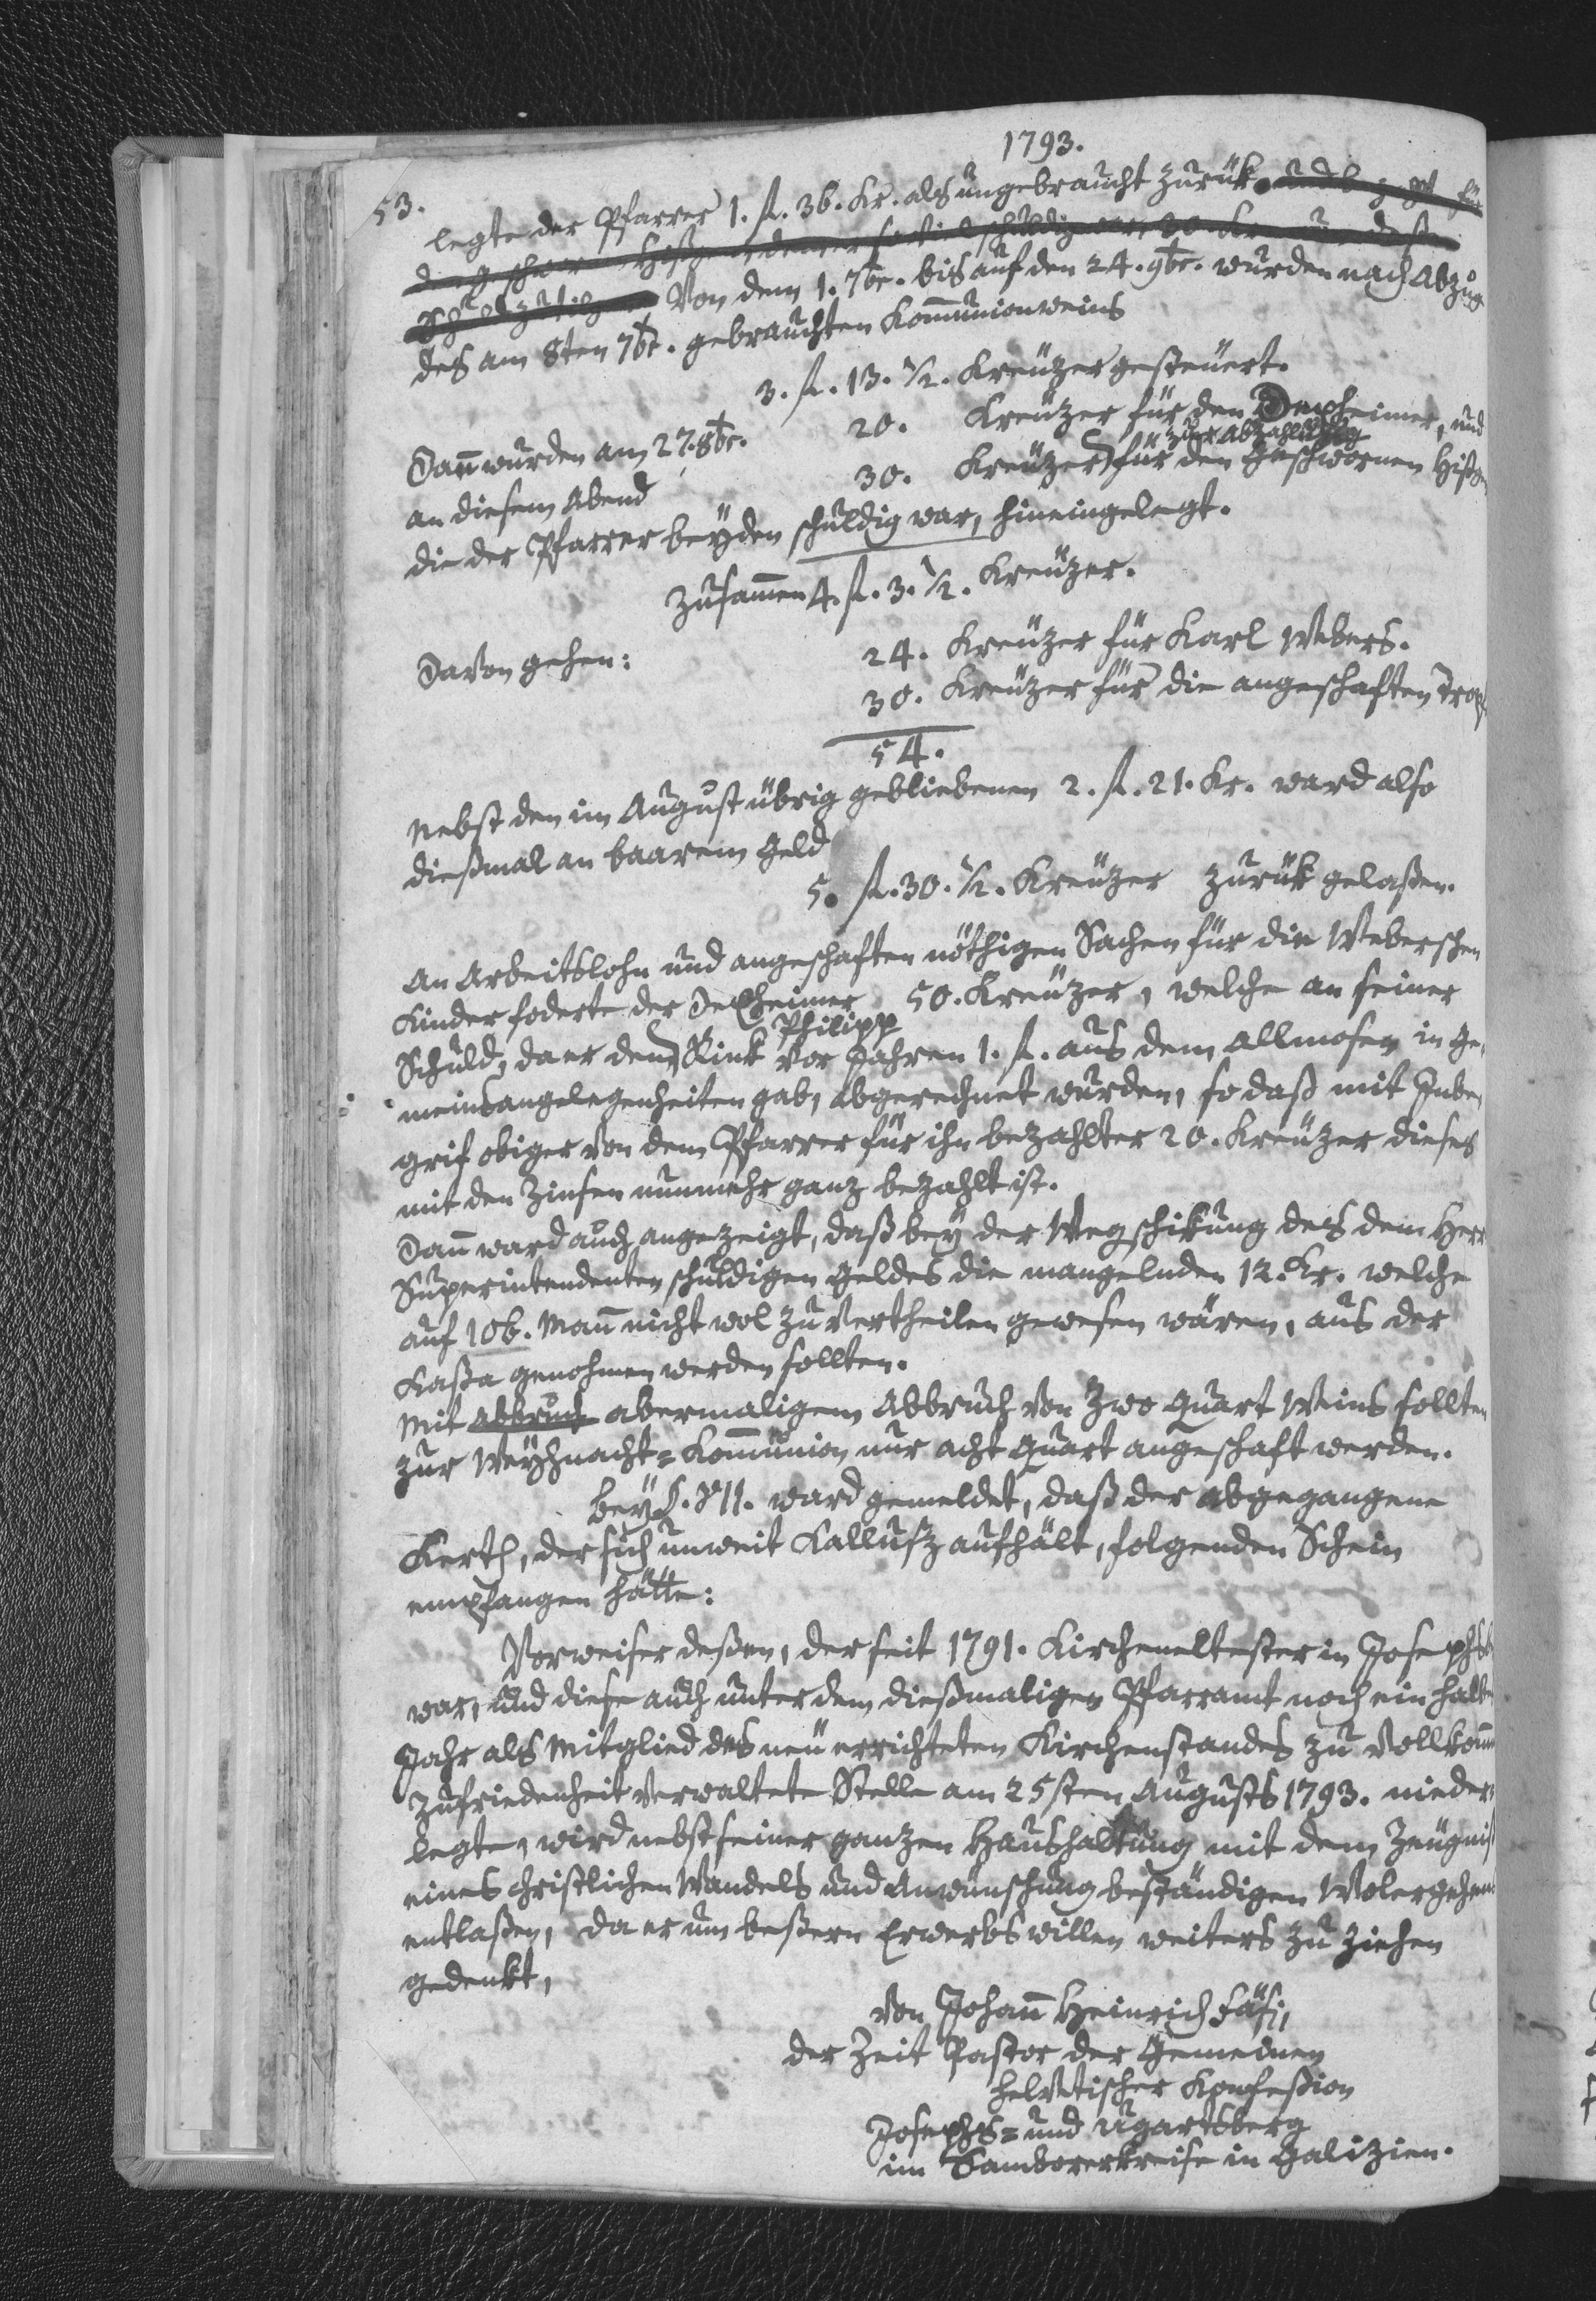 1793.
53.
legte der Pfarrer 1. fl. 36. Kr. als ungebraucht zurük.
Von dem 1. 7br. bis auf den 24. 9br. wurden nach Abzug
des am 8ten 7br. gebrauchten Kom̅unionweins
3. fl. 13. ½. Kreuzer gesteuert.
Dan̅ wurden am 27. 8br. 20. Kreuzer für den Dexheimer, und
zur Abzahlung
an diesem Abend 30. Kreuzer für den Geschwornen
die der Pfarrer beÿden schuldig war, hineingelegt.
Zusam̅en 4. fl. 3. ½. Kreuzer.
Davon gehen: 24. Kreuzer für Karl Webers.
30. Kreuzer für die angeschaften
54.
Nebst den im August übrig gebliebenen 2. fl. 21. Kr. ward also
dießmal an baarem Geld
5. fl. 30. ½. Kreuzer zurük gelaßen.
An Arbeitslohn und angeschaften nöthigen Sachen für die Weberschen
Kinder foderte der Dexheimer 50. Kreuzer, welche an seiner
Philipp
Schuld, da er dem Rink vor Jahren 1. fl. aus dem Allmosen in Ge-
meinsangelegenheiten gab, abgerechnet wurden, so daß mit Inbe-
grif obiger von dem Pfarrer für ihn bezahlter 20. Kreuzer dieses
mit den Zinsen nunmehr ganz bezahlt ist.
Dan̅ ward auch angezeigt, daß beÿ der Wegschikung des dem Herr
Superintendenten schuldigen Geldes die mangelnden 12. Kr. welche
auf 106. Man̅ nicht wol zu vertheilen gewesen wären, aus der
Kaßa genohmen werden sollten.
Mit Abbruch abermaligem Abbruch von Zwo Quart Weins sollten
zur Weÿhnacht=Kom̅union nur acht Quart angeschaft werden.
Beÿ §. VII. ward gemeldet, daß der abgegangene
Kerth, der sich unweit Kallusz aufhält, folgenden Schein
empfangen hätte:
Vorweiser deßen, der seit 1791. Kirchenältester in Josephsb
war, und diese auch unter dem dießmaligen Pfarramt noch ein halb
Jahr als Mitglied des neu errichteten Kirchenstandes zu vollkom̅
Zufriedenheit verwaltete Stelle am 25sten Augusts 1793. nieder-
legte, wird nebst seiner ganzen Haushaltung mit dem Zeugniß
eines christlichen Wandels und Anwünschung beständigen Wolergehens
entlaßen, da er um beßern Erwerbs willen weiters zu ziehen
gedenkt,
von Johan̅ Heinrich Fäsi,
der Zeit Pastor der Gemeinen
helvetischer Konfeßion
Josephs= und Ugartsberg
im Samborerkreise in Galizien.